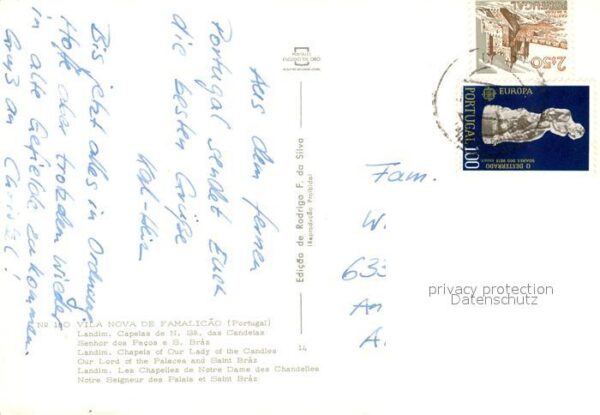 Aus dem fernen
Portugal sendet Euch
die besten Grüße
Karl-Heinz
Bis jetzt alles in Ordnung.
Hoffe aber trotzdem wieder
in alte Gefielde zu kommen.
Gruß an Christel!
Edição de Rodrigo F. da Silva
(Reprodução Proibida)
14
Nº 100 VILA NOVA DE FAMALICÃO (Portugal)
Landim. Capelas de N. Sª. das Candeias
Senhor dos Paços e S. Bráz
Landim. Chapels of Our Lady of the Candles
Our Lord of the Palaces and Saint Bráz
Landim. Les Chapelles de Notre Dame des Chandelles
Notre Seigneur des Palais et Saint Bráz
PORTUGAL
2$50
EUROPA
PORTUGAL 1.00
O DESTERRADO
SOARES DOS REIS
Fam.
W.
633
A.
privacy protection
Datenschutz